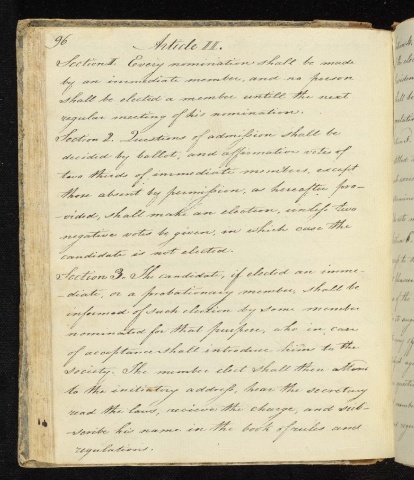 96
Article II.
Section 1. Every nomination shall be made
by an immediate member, and no person
shall be elected a member untill the next
regular meeting of his nominations.
Section 2. Questions of admission shall be
decided by ballot, and affirmative votes of
two thirds of immediate members, except
those absent by permission, as hereafter pro-
vided, shall make an election, unless two
negative votes be given, in which case the
candidate is not elected.
Section 3. The candidate, if elected an imme-
diate, or a probationary member, shall be
informed of such election by some member
nominated for that purpose, who in case
of acceptance shall introduce him to the
society. The member elect shall then attend
to the initiatory address, hear the secretary
read the laws, recieve the charge, and sub-
scribe his name in the book of rules and
regulations.